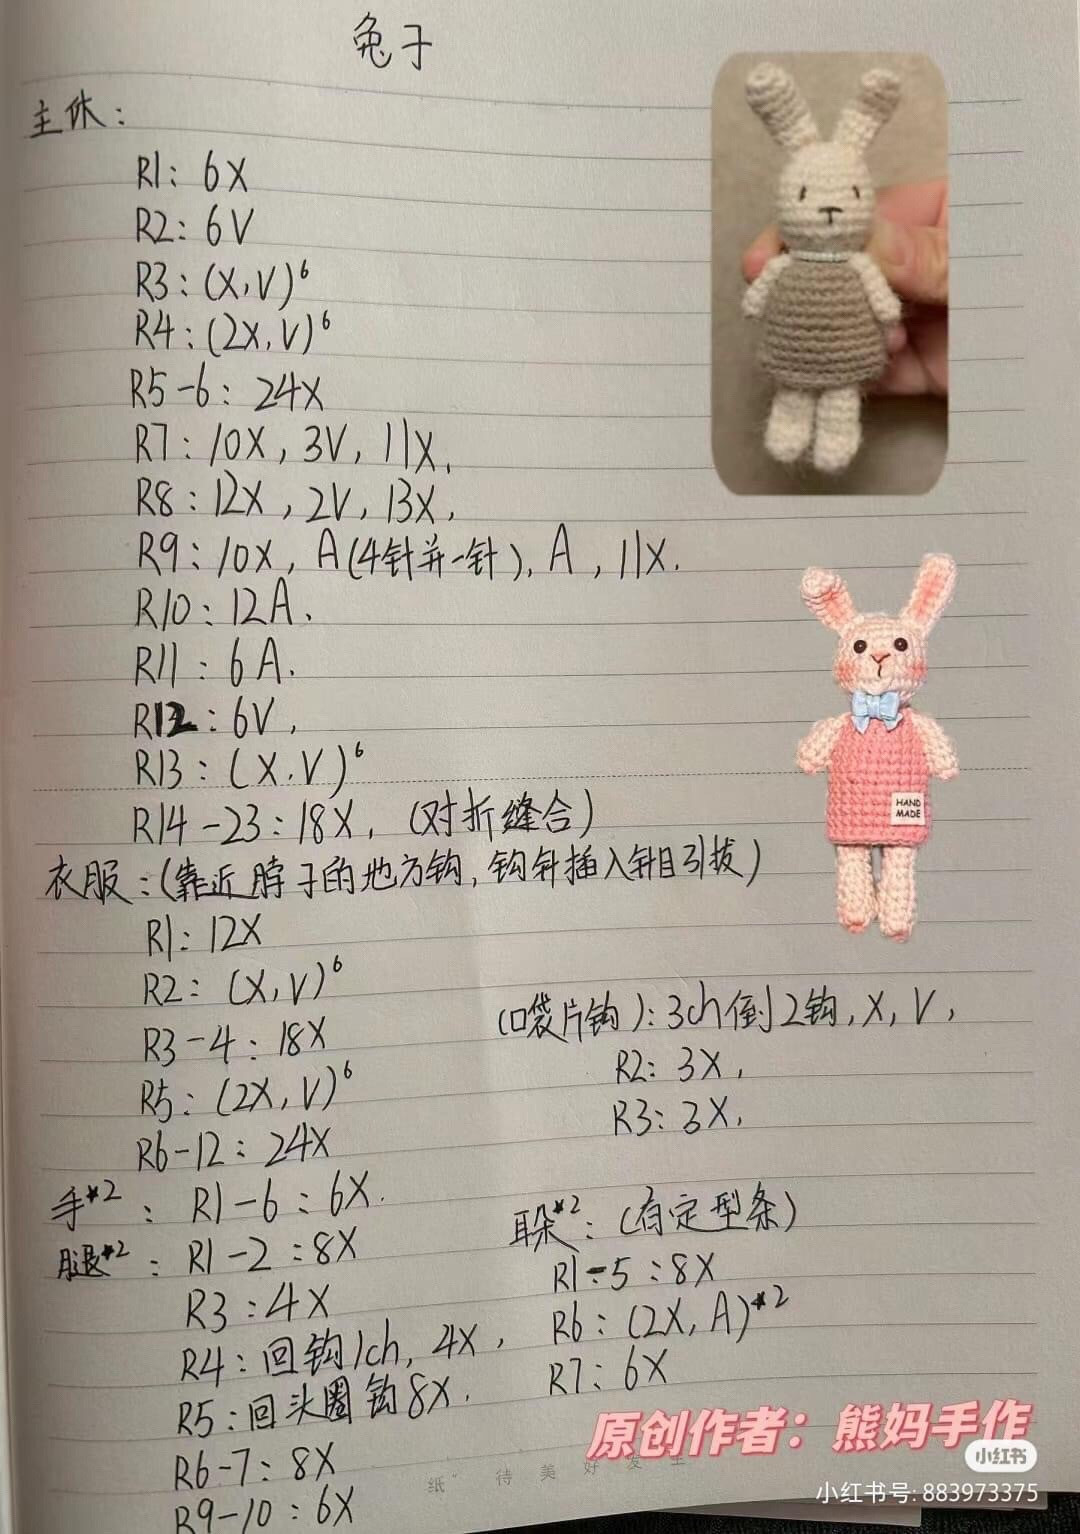 兔子
主体:
R1: 6X
R2: 6V
R3: (X,V)⁶
R4: (2X,V)⁶
R5-6: 24X
R7: 10X, 3V, 11X,
R8: 12X, 2V, 13X,
R9: 10X, A(4针并一针), A, 11X.
R10: 12A.
R11: 6A.
R12: 6V,
R13: (X.V)⁶
R14-23: 18X, (对折缝合)
衣服: (靠近脖子的地方钩, 钩针插入针目引拔)
R1: 12X
R2: (X,V)⁶
R3-4: 18X
R5: (2X,V)⁶
R6-12: 24X
(口袋片钩): 3ch倒2钩, X, V,
R2: 3X,
R3: 3X,
手*2: R1-6: 6X.
腿*2: R1-2: 8X
R3: 4X
R4: 回钩1ch, 4X,
R5: 回头圈钩8X.
R6-7: 8X
R9-10: 6X
耳朵*2: (有定型条)
R1-5: 8X
R6: (2X, A)*2
R7: 6X
HAND
MADE
纸" 待 美 好 发 生
原创作者：熊妈手作
小红书
小红书号: 883973375